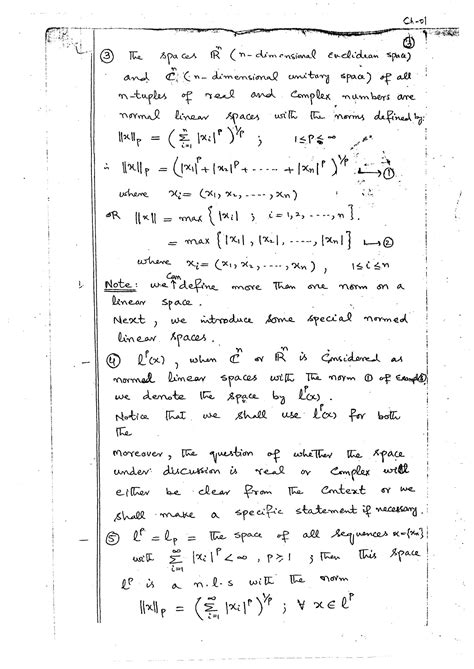 Ch-01
③ The spaces ℝⁿ (n-dimensional euclidean space)
and ℂⁿ (n-dimensional unitary space) of all
n-tuples of real and Complex numbers are
normal linear spaces with the norms defined by:
||x||_p = (∑_{i=1}^{n} |x_i|^p)^{1/p} ; 1≤p≤∞
∴ ||x||_p = (|x_1|^p + |x_2|^p + ..... + |x_n|^p)^{1/p} → ①
where x_i = (x_1, x_2, ...., x_n)
OR ||x|| = max {|x_i| ; i = 1, 2, ...., n}.
= max {|x_1|, |x_2|, ...., |x_n|} → ②
where x_i = (x_1, x_2, ...., x_n) , 1≤i≤n
Note: we Can define more than one norm on a
linear space.
Next, we introduce some special normed
linear spaces.
④ l^p(x), when ℂⁿ or ℝⁿ is Considered as
normed linear spaces with the norm ① of Example
we denote the space by l^p(x).
Notice that we shall use l^p(x) for both
the
moreover, the question of whether the space
under discussion is real or Complex will
either be clear from the Context or we
shall make a specific statement if necessary.
⑤ l^p = l_p = the space of all sequences x={x_n}
with ∑_{i=1}^{∞} |x_i|^p < ∞, p≥1 ; then this space
l^p is a n.l.s with the norm
||x||_p = (∑_{i=1}^{∞} |x_i|^p)^{1/p} ; ∀ x∈l^p